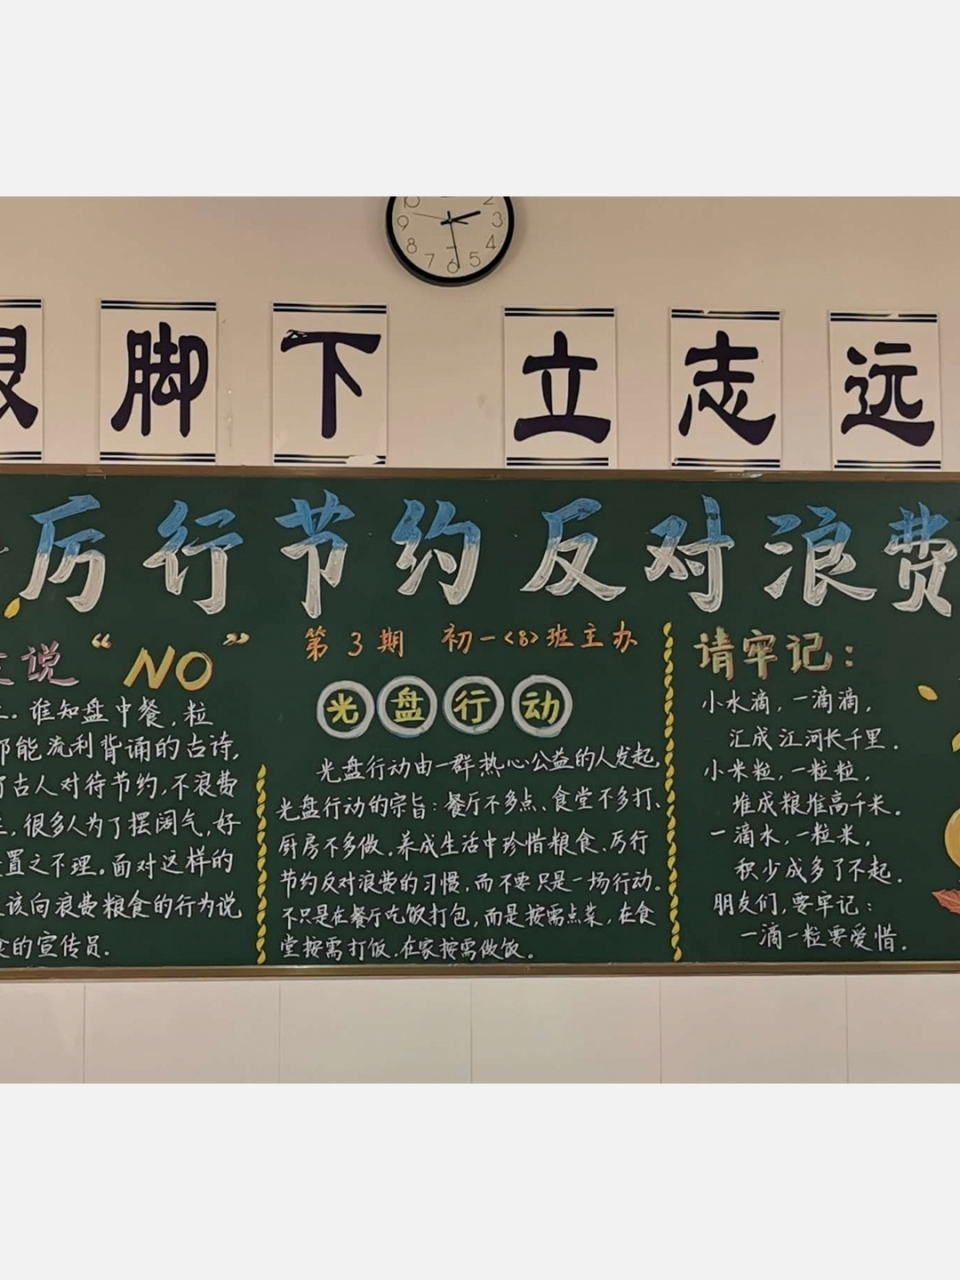 10 2
9 3
8 4
7 6 5
脚下 立志远
厉行节约反对浪费
说“NO”
谁知盘中餐,粒
都能流利背诵的古诗,
了古人对待节约,不浪费
很多人为了摆阔气,好
置之不理。面对这样的
该向浪费粮食的行为说
的宣传员.
第3期 初一<8>班主办
光盘行动
光盘行动由一群热心公益的人发起,
光盘行动的宗旨:餐厅不多点、食堂不多打、
厨房不多做.养成生活中珍惜粮食、厉行
节约反对浪费的习惯,而不要只是一场行动。
不只是在餐厅吃饭打包,而是按需点菜,在食
堂按需打饭.在家按需做饭。
请牢记:
小水滴,一滴滴,
汇成江河长千里.
小米粒,一粒粒,
堆成粮堆高千米.
一滴水,一粒米,
积少成多了不起.
朋友们,要牢记:
一滴一粒要爱惜.